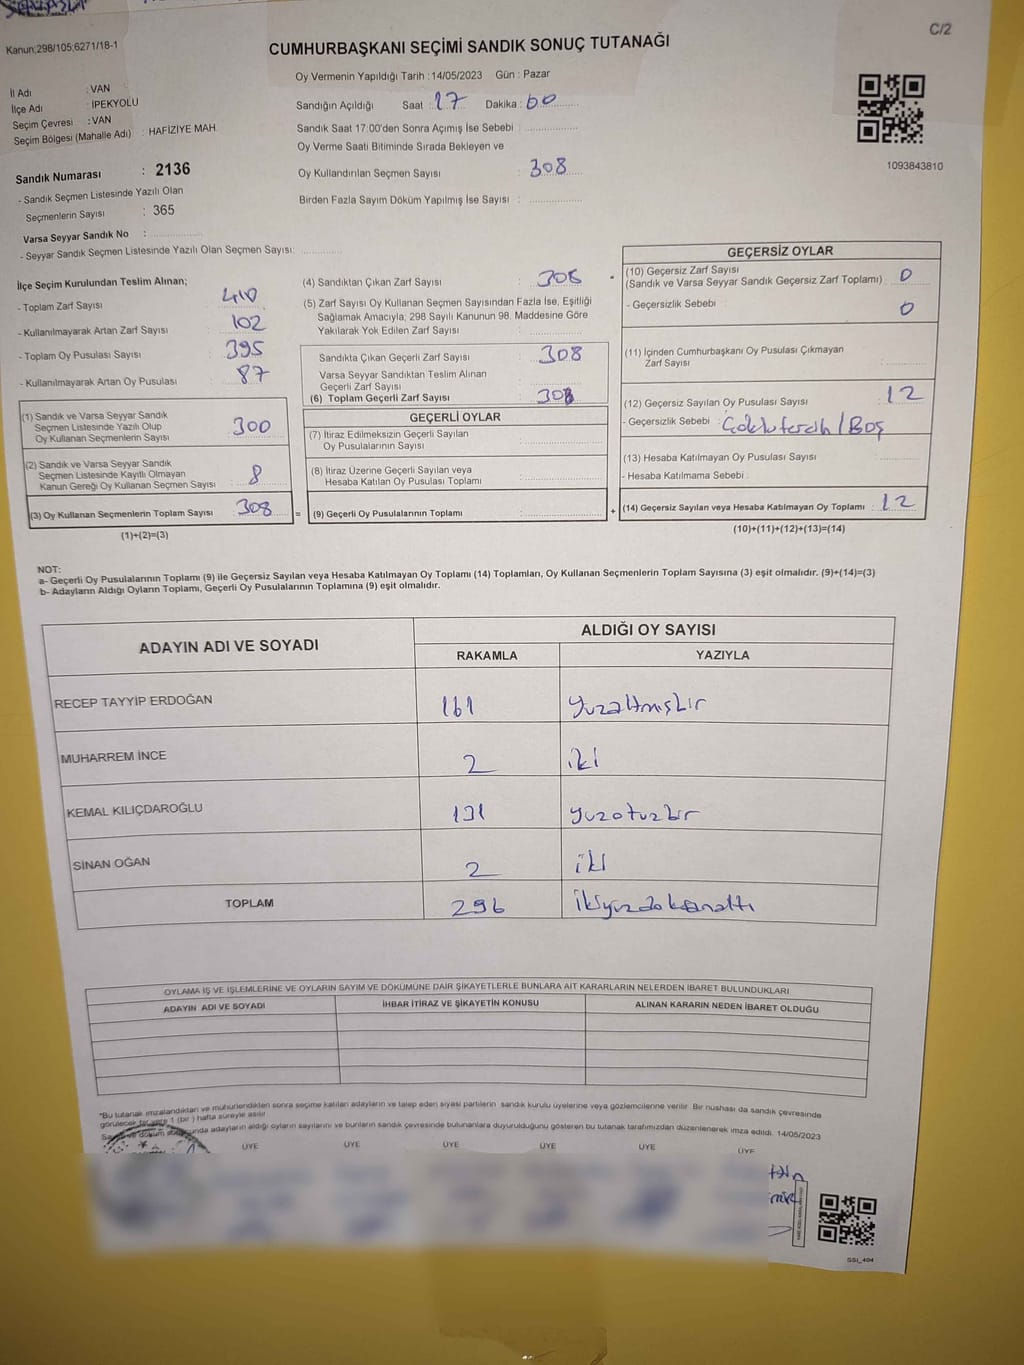 C/2
Kanun;298/105;6271/18-1
CUMHURBAŞKANI SEÇİMİ SANDIK SONUÇ TUTANAĞI
Oy Vermenin Yapıldığı Tarih :14/05/2023 Gün : Pazar
İl Adı : VAN
İlçe Adı : İPEKYOLU
Seçim Çevresi : VAN
Seçim Bölgesi (Mahalle Adı) : HAFİZİYE MAH.
Sandığın Açıldığı Saat : 17 Dakika : 00
Sandık Saat 17:00'den Sonra Açımış İse Sebebi :
Oy Verme Saati Bitiminde Sırada Bekleyen ve
Oy Kullandırılan Seçmen Sayısı : 308
Birden Fazla Sayım Döküm Yapılmış İse Sayısı :
1093843810
Sandık Numarası : 2136
- Sandık Seçmen Listesinde Yazılı Olan
Seçmenlerin Sayısı : 365
Varsa Seyyar Sandık No :
- Seyyar Sandık Seçmen Listesinde Yazılı Olan Seçmen Sayısı:
İlçe Seçim Kurulundan Teslim Alınan;
- Toplam Zarf Sayısı : 410
- Kullanılmayarak Artan Zarf Sayısı : 102
- Toplam Oy Pusulası Sayısı : 395
- Kullanılmayarak Artan Oy Pusulası : 87
(1) Sandık ve Varsa Seyyar Sandık
Seçmen Listesinde Yazılı Olup
Oy Kullanan Seçmenlerin Sayısı : 300
(2) Sandık ve Varsa Seyyar Sandık
Seçmen Listesinde Kayıtlı Olmayan
Kanun Gereği Oy Kullanan Seçmen Sayısı : 8
(3) Oy Kullanan Seçmenlerin Toplam Sayısı : 308
(1)+(2)=(3)
(4) Sandıktan Çıkan Zarf Sayısı : 308
(5) Zarf Sayısı Oy Kullanan Seçmen Sayısından Fazla İse, Eşitliği
Sağlamak Amacıyla, 298 Sayılı Kanunun 98. Maddesine Göre
Yakılarak Yok Edilen Zarf Sayısı :
Sandıkta Çıkan Geçerli Zarf Sayısı : 308
Varsa Seyyar Sandıktan Teslim Alınan
Geçerli Zarf Sayısı :
(6) Toplam Geçerli Zarf Sayısı : 308
GEÇERLİ OYLAR
(7) İtiraz Edilmeksizin Geçerli Sayılan
Oy Pusulalarının Sayısı :
(8) İtiraz Üzerine Geçerli Sayılan veya
Hesaba Katılan Oy Pusulası Toplamı :
= (9) Geçerli Oy Pusulalarının Toplamı :
GEÇERSİZ OYLAR
(10) Geçersiz Zarf Sayısı
(Sandık ve Varsa Seyyar Sandık Geçersiz Zarf Toplamı) : 0
- Geçersizlik Sebebi : 0
(11) İçinden Cumhurbaşkanı Oy Pusulası Çıkmayan
Zarf Sayısı :
(12) Geçersiz Sayılan Oy Pusulası Sayısı : 12
- Geçersizlik Sebebi : Çoklu tercih / Boş
(13) Hesaba Katılmayan Oy Pusulası Sayısı :
- Hesaba Katılmama Sebebi :
+ (14) Geçersiz Sayılan veya Hesaba Katılmayan Oy Toplamı : 12
(10)+(11)+(12)+(13)=(14)
NOT:
a- Geçerli Oy Pusulalarının Toplamı (9) ile Geçersiz Sayılan veya Hesaba Katılmayan Oy Toplamı (14) Toplamları, Oy Kullanan Seçmenlerin Toplam Sayısına (3) eşit olmalıdır. (9)+(14)=(3)
b- Adayların Aldığı Oyların Toplamı, Geçerli Oy Pusulalarının Toplamına (9) eşit olmalıdır.
ADAYIN ADI VE SOYADI ALDIĞI OY SAYISI
RAKAMLA YAZIYLA
RECEP TAYYİP ERDOĞAN 161 yüzaltmışbir
MUHARREM İNCE 2 iki
KEMAL KILIÇDAROĞLU 131 yuzotuzbir
SİNAN OĞAN 2 iki
TOPLAM 296 ikiyuzdoksanaltı
OYLAMA İŞ VE İŞLEMLERİNE VE OYLARIN SAYIM VE DÖKÜMÜNE DAİR ŞİKAYETLERLE BUNLARA AİT KARARLARIN NELERDEN İBARET BULUNDUKLARI
ADAYIN ADI VE SOYADI İHBAR İTİRAZ VE ŞİKAYETİN KONUSU ALINAN KARARIN NEDEN İBARET OLDUĞU
*Bu tutanak imzalandıktan ve mühürlendikten sonra seçime katılan adayların ve talep eden siyasi partilerin sandık kurulu üyelerine veya gözlemcilerine verilir. Bir nüshası da sandık çevresinde
görülecek bir yere 1 (bir) hafta süreyle asılır.
adayların aldığı oyların sayılarını ve bunların sandık çevresinde bulunanlara duyurulduğunu gösteren bu tutanak tarafımızdan düzenlenerek imza edildi. 14/05/2023
ÜYE ÜYE ÜYE ÜYE ÜYE ÜYE
SSI_404